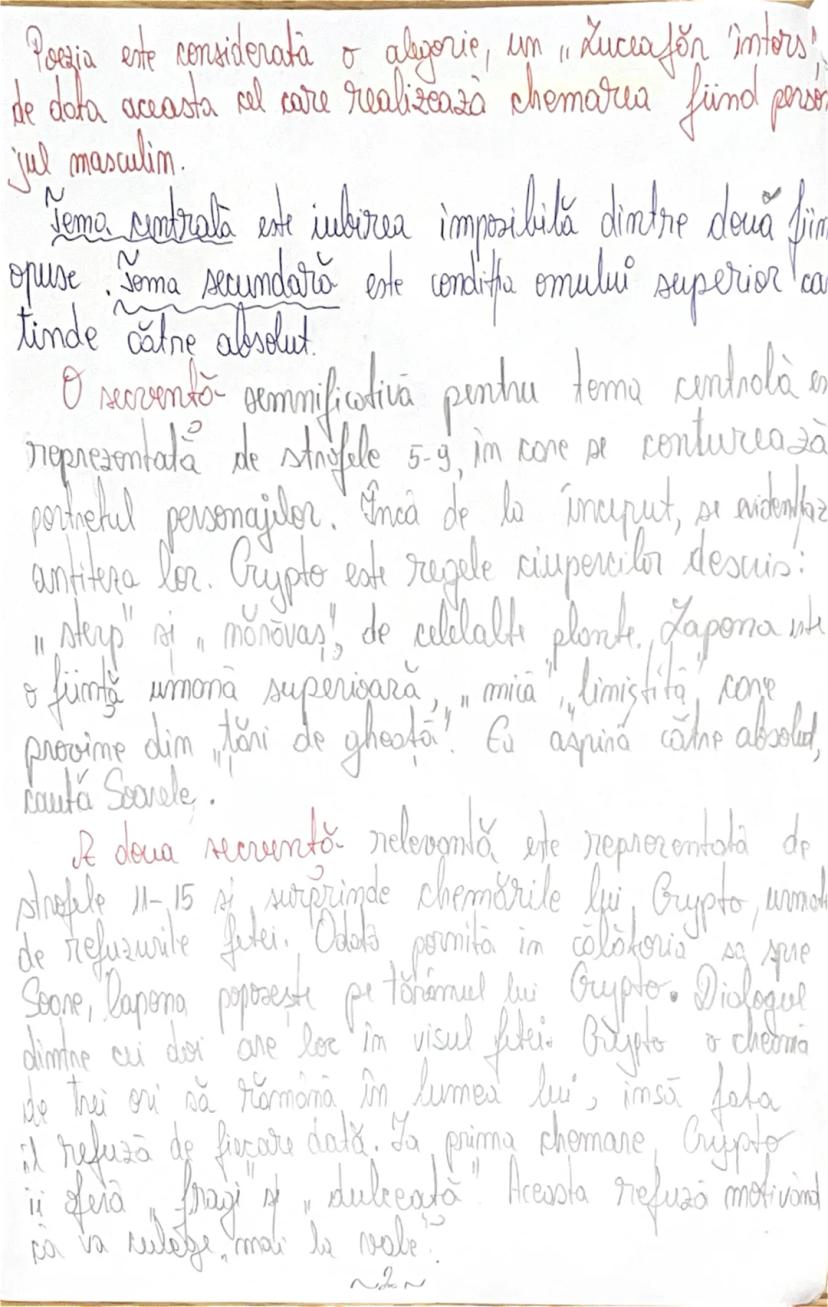 Poezia este considerată o alegorie, un „Luceafăr întors”,
de data aceasta cel care realizează chemarea fiind person
jul masculin.
Tema centrală este iubirea imposibilă dintre două fiin
opuse. Tema secundară este condiția omului superior ca
tinde către absolut.
O secvență semnificativă pentru tema centrală es
reprezentată de strofele 5-9, în care se conturează
portretul personajelor. Încă de la început, se evidențiaz
antiteza lor. Crypto este regele ciupercilor descris:
„sterp” și „nărăvaș”, de celelalte plante. Lapona este
o ființă umană superioară, „mică”, „liniștită”, care
provine din „țări de gheață”. Ea aspiră către absolut,
caută Soarele.
A doua secvență relevantă este reprezentată de
strofele 11-15 și surprinde chemările lui Crypto, urmat
de refuzurile fetei. Odată pornită în călătoria sa spre
Soare, lapona poposește pe tărâmul lui Crypto. Dialogul
dintre cei doi are loc în visul fetei. Crypto o cheamă
de trei ori să rămână în lumea lui, însă fata
îl refuză de fiecare dată. La prima chemare, Crypto
îi oferă „fragi” și „dulceață”. Aceasta refuză motivând
că va culege „mai la vale”.
~2~